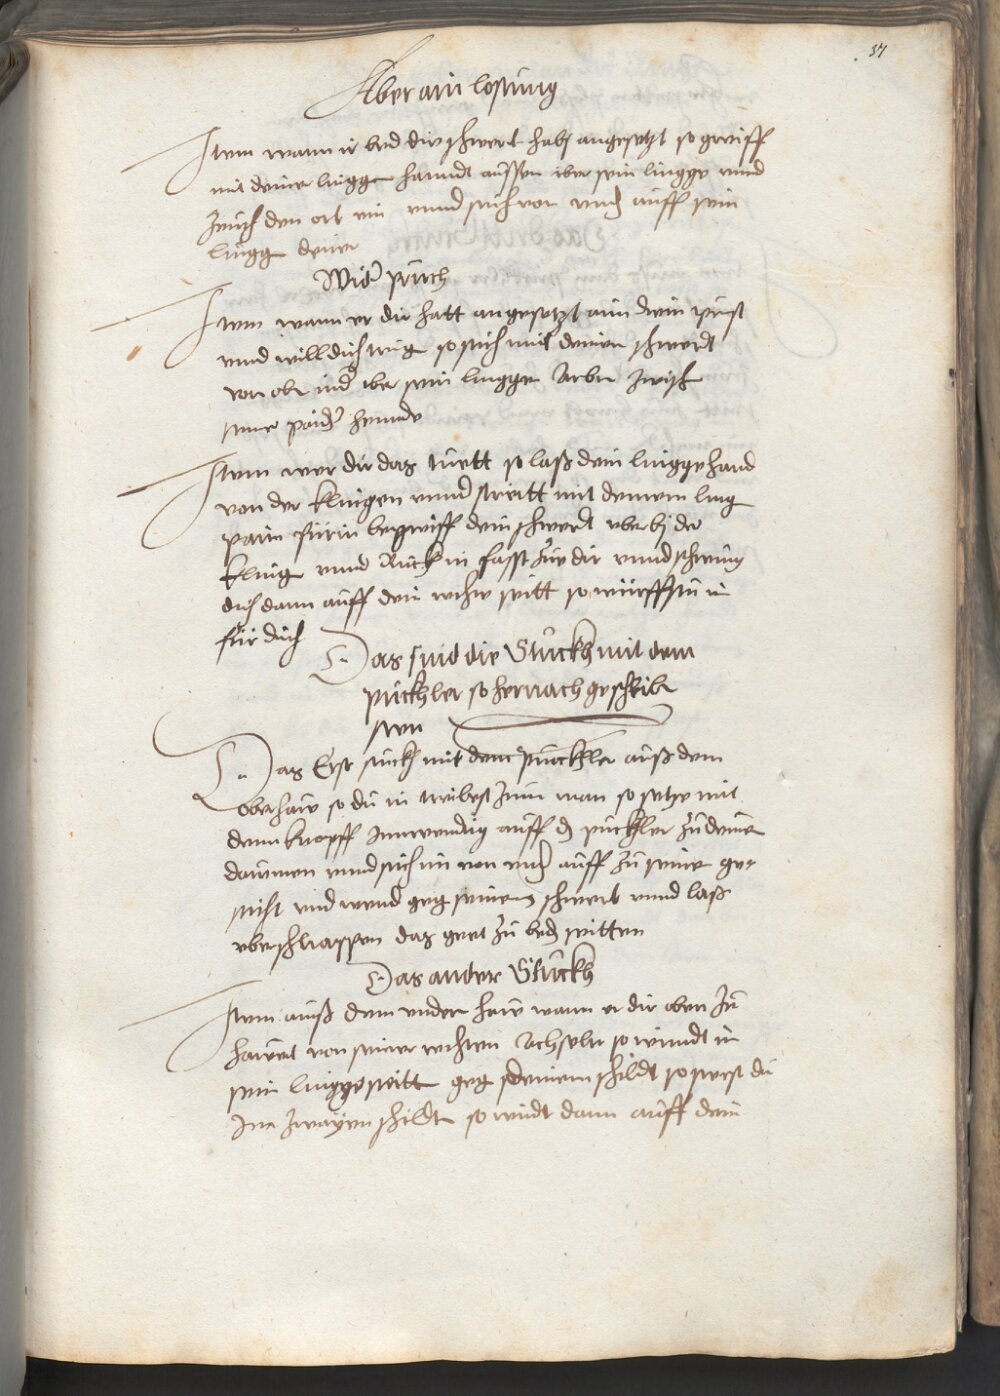 37
Aber ain losung
Item wann ir bed die schwert habt angesetzt so greiff
mit deiner lingge hanndt aussen iber sein lingge vnnd
den ort ein vnnd stich von vnd auff sein
lingg
Wider pruch
Item wann er dir hatt angesetzt ann dein prust
vnnd will dich so stich mit deinem schwerdt
von oben iber sein lingge zwisch
seine paider hennde
Item wer dir das wertt so lass dein lingge hand
von der klingen vnnd schreitt mit deinem ling
pain fürin begreiff dein schwerdt bej der
kling vnnd ruck in fasst zu dir vnnd schwing
dich dann auff dein rechte seitt so würffstu in
für dich
Das sind die Stuckh mit dem
puckhler so hernach geschrib
sten
Das Erst stuckh mit dem puckhler auss dem
oberhaw so du in treibest zum man so setze mit
dem knopff Innwendig auff den puckhler zu deine
daumen vnnd stich im von vnd auff zu seine ge-
sicht vnd wend geg seinem schwert vnnd lass
vberschnappen das geet zu bed seitten
Das ander Stuckh
Item auss dem vnder haw wann er dir oben zu
hawet von seiner rechten Achseln so windt im
sein lingge seitt geg deinem schildt so stest du
Inn zwayen schildtn so windt dann auff dein